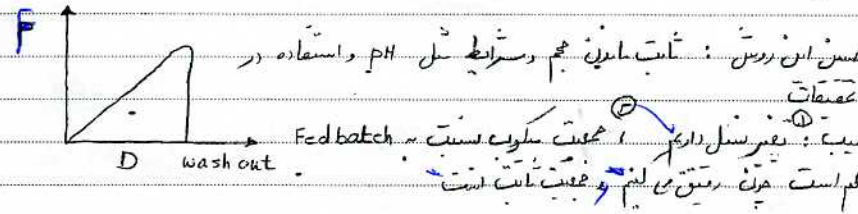 F
حسن این روش : ثابت ماندن حجم و شرایط مثل pH و استفاده در
تحقیقات
عیب : ① تغییر نسل داریم ② جمعیت میکروب نسبت به Fed batch
کم است چون رقیق می کنیم و جمعیت ثابت است
D wash out